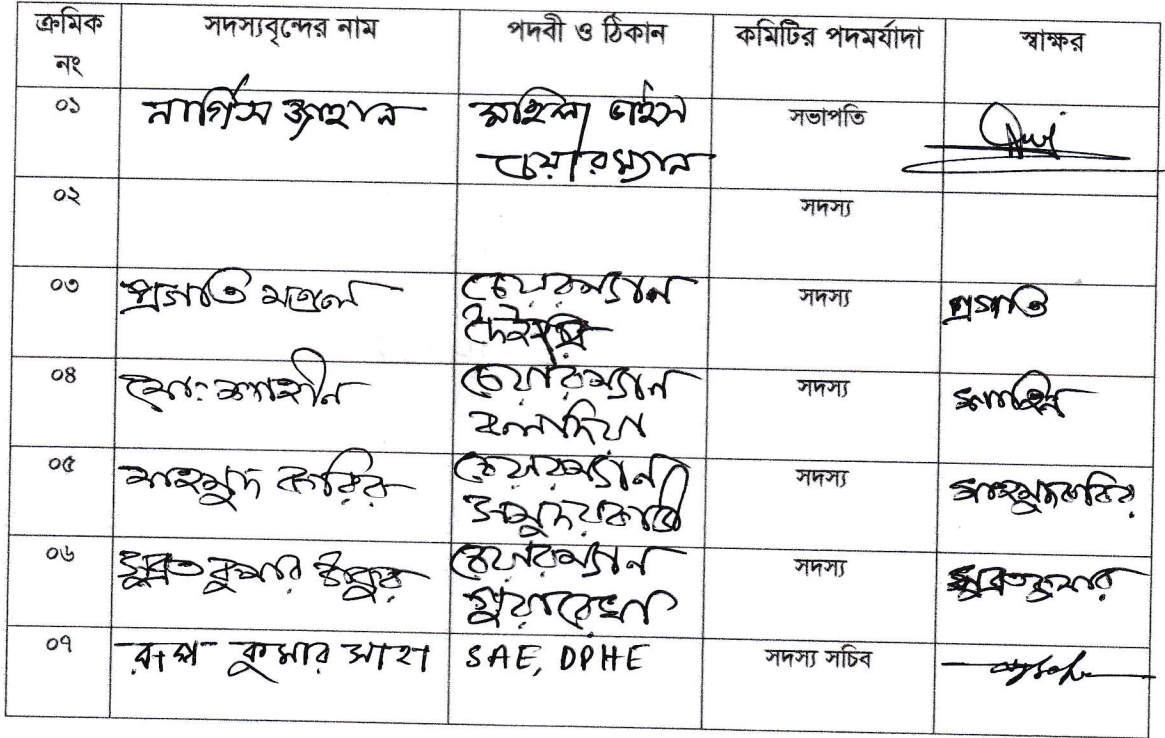 ক্রমিক নং সদস্যবৃন্দের নাম পদবী ও ঠিকান কমিটির পদমর্যাদা স্বাক্ষর
০১ নার্গিস জাহান মহিলা ভাইস চেয়ারম্যান সভাপতি
০২ সদস্য
০৩ প্রগতি মন্ডল চেয়ারম্যান দৈহারী সদস্য প্রগতি
০৪ মোঃ শাহীন চেয়ারম্যান বলদিয়া সদস্য শাহীন
০৫ মাহমুদ করির চেয়ারম্যান সমুদয়কাঠী সদস্য মাহমুদ করির
০৬ সুব্রত কুমার ঠাকুর চেয়ারম্যান গুয়ারেখা সদস্য সুব্রত কুমার
০৭ রূপ কুমার সাহা SAE, DPHE সদস্য সচিব